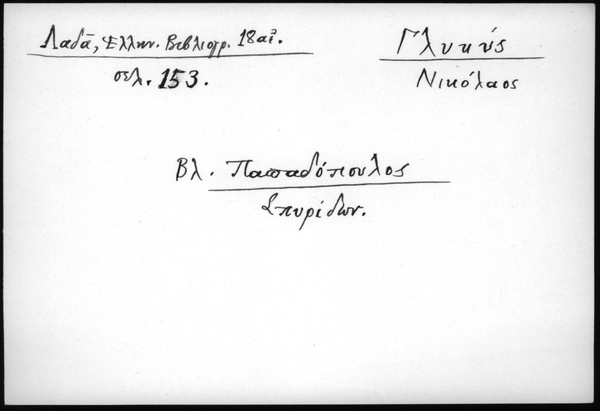 Λαδᾶ, Ἑλλην. Βιβλιογρ. 18 αἰ.
σελ. 153.
Γλυκύς
Νικόλαος
Βλ. Παπαδόπουλος
Σπυρίδων.